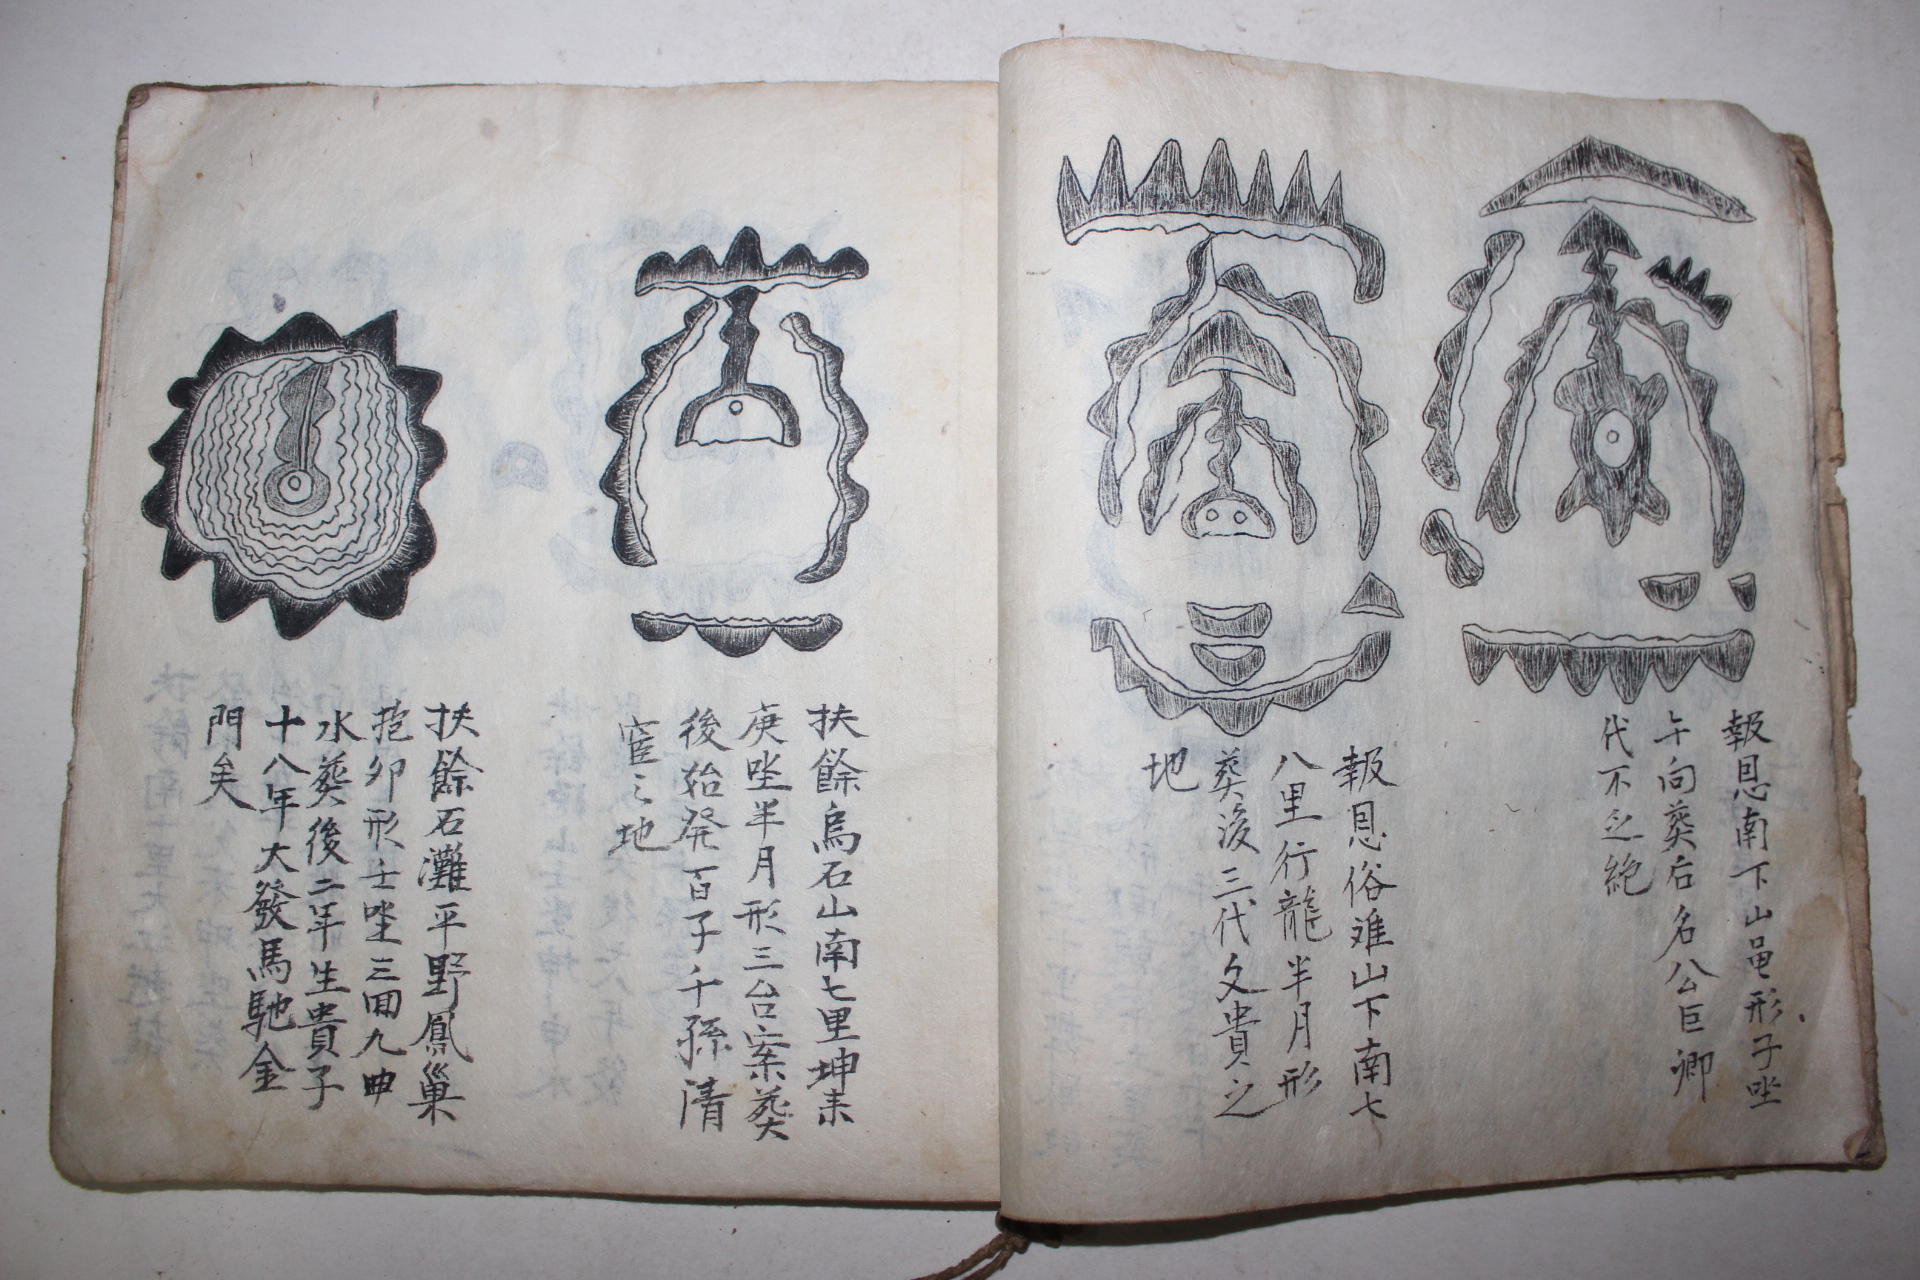 報恩南下山黽形子坐
午向葵后名公巨卿
代不之絶
報恩俗难山下南七
八里行龍半月形
葵後三代文貴之
地
扶餘烏石山南七里坤耒
庚坐半月形三台案葵
後始発百子千孫清
宦之地
扶餘石灘平野鳳巢
抱卵形壬坐三回九曲
水葵後二年生貴子
十八年大發馬馳金
門矣